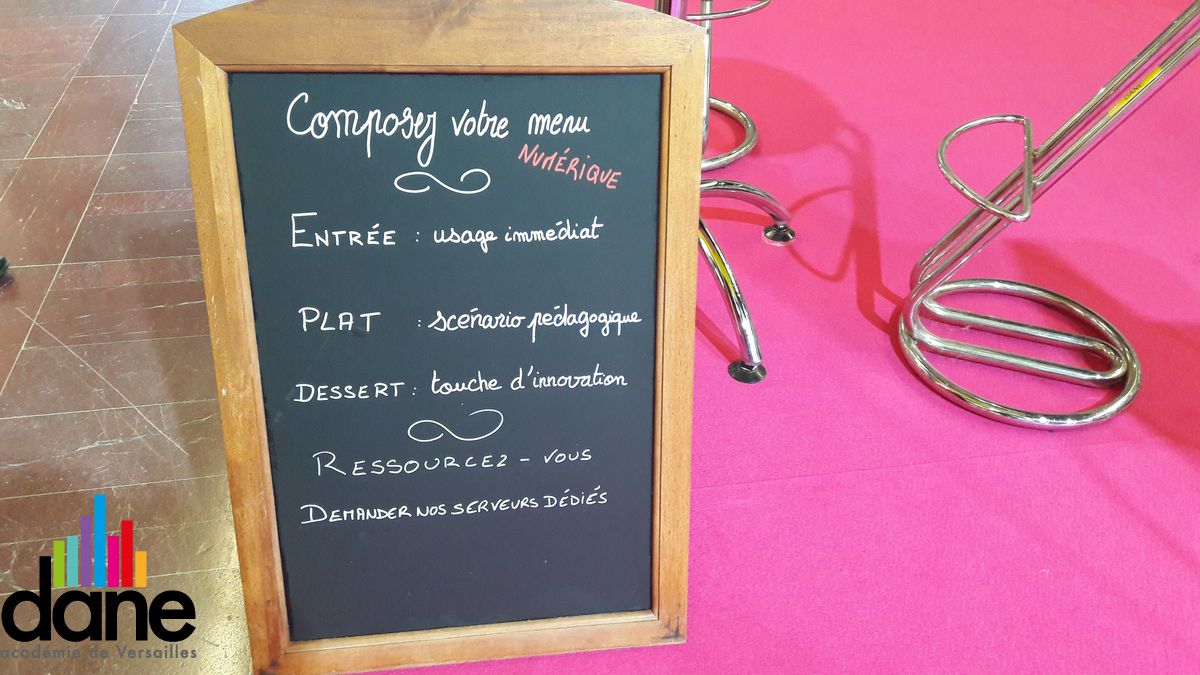 Composez votre menu
NUMÉRIQUE
ENTRÉE : usage immédiat
PLAT : scénario pédagogique
DESSERT : touche d'innovation
RESSOURCEZ - VOUS
DEMANDER NOS SERVEURS DÉDIÉS
DANE
dane
académie de Versailles